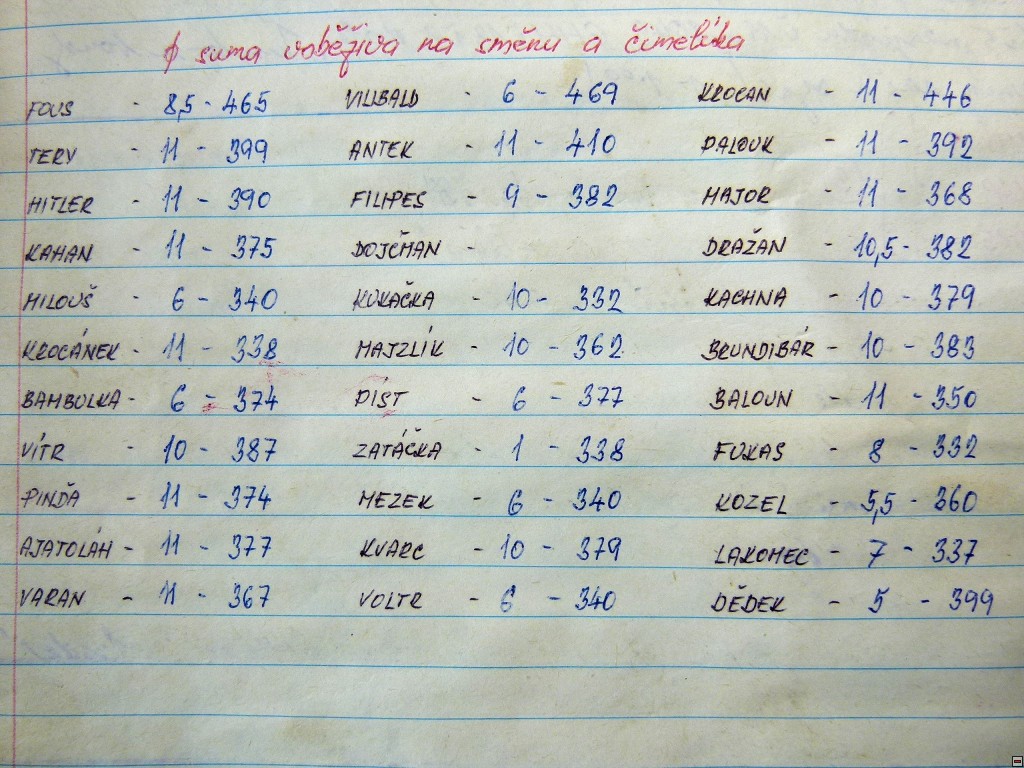 ϕ suma voběživa na směnu a čimelíka
FOUS - 8,5 - 465 VILIBALD - 6 - 469 KROCAN - 11 - 446
TERY - 11 - 399 ANTEK - 11 - 410 PALOUK - 11 - 392
HITLER - 11 - 390 FILIPES - 9 - 382 MAJOR - 11 - 368
KAHAN - 11 - 375 DOJČMAN - DRAŽAN - 10,5 - 382
MILOUŠ - 6 - 340 KUKAČKA - 10 - 332 KACHNA - 10 - 379
KROCÁNEK - 11 - 338 MAJZLÍK - 10 - 362 BRUNDIBÁR - 10 - 383
BAMBULKA - 6 - 374 PÍŠT - 6 - 377 BALOUN - 11 - 350
VÍTR - 10 - 387 ZATÁČKA - 1 - 338 FUKAS - 8 - 332
PINĎA - 11 - 374 MEZEK - 6 - 340 KOZEL - 5,5 - 360
AJATOLÁH - 11 - 377 KVARC - 10 - 379 LAKOMEC - 7 - 337
VARAN - 11 - 367 VOLTR - 6 - 340 DĚDEK - 5 - 399